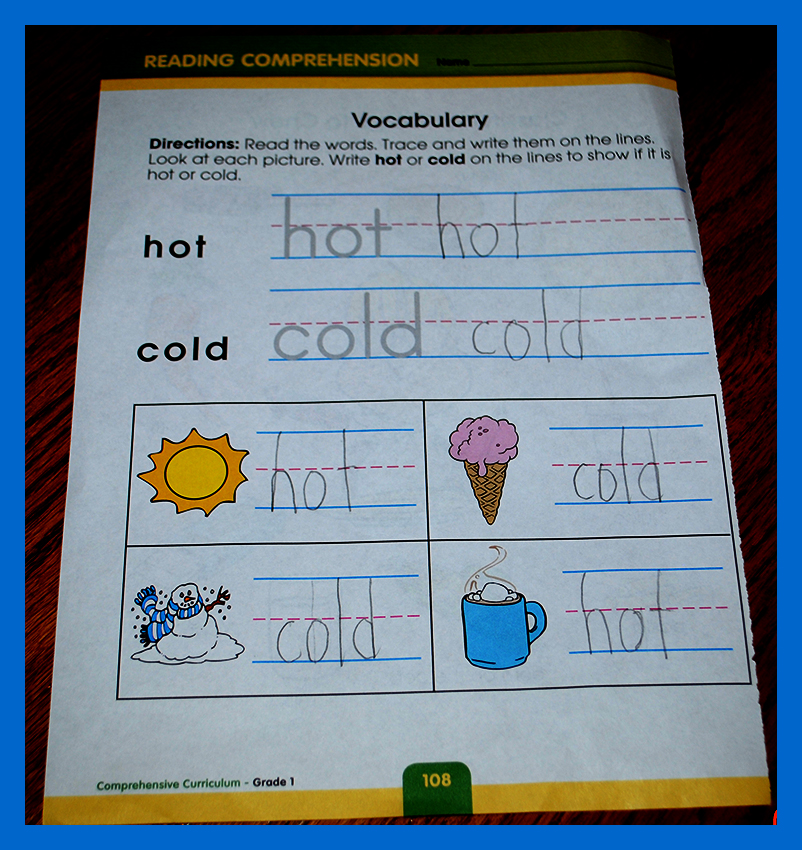 READING COMPREHENSION Name
Vocabulary
Directions: Read the words. Trace and write them on the lines.
Look at each picture. Write hot or cold on the lines to show if it is
hot or cold.
hot hot hot
cold cold cold
hot cold
cold hot
Comprehensive Curriculum - Grade 1 108